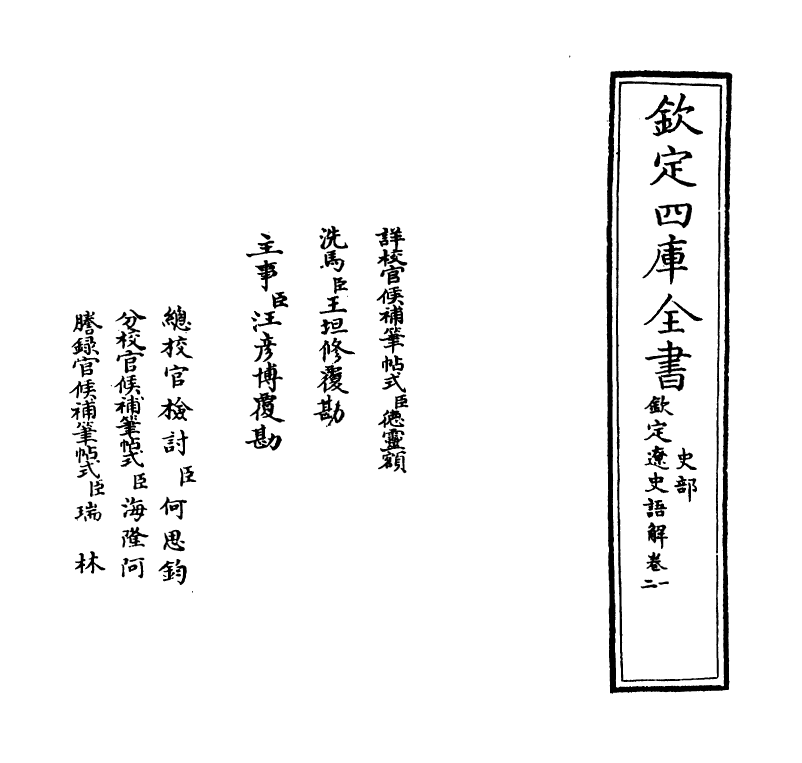 欽定四庫全書
史部
欽定遼史語解卷一
二
詳校官候補筆帖式臣德靈額
洗馬臣王坦修覆勘
主事臣汪彥博覆勘
總校官檢討臣何思鈞
分校官候補筆帖式臣海隆阿
謄録官候補筆帖式臣瑞林